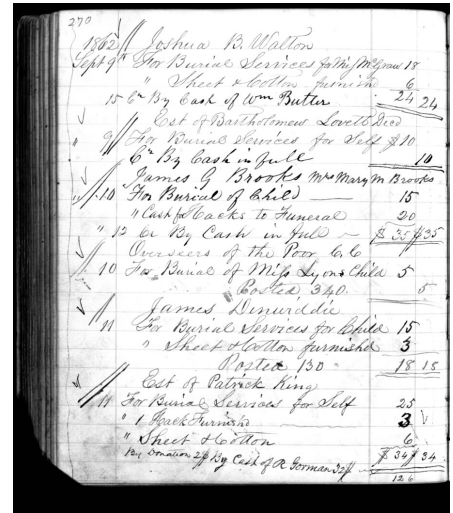 270
1862 Joshua B. Walton
Sept 9 " For Burial Services for Mrs McGraw 18
" Sheet & Cotton furnish 6
15 Cr By Cash of Wm Butter 24 24
Est of Bartholomew Lovett Decd
" 9 For Burial Services for Self $10
Cr By Cash in full 10
James G Brooks Mrs Mary M Brooks
" 10 For Burial of Child 15
" Cash for Hacks to Funeral 20
" 12 Cr By Cash in full $35 $35
Overseers of the Poor C.C
10 For Burial of Miss Lyons Child 5
Posted 340 5
James Dinwiddie
11 For Burial Services for Child 15
" Sheet & Cotton furnishd 3
Posted 130 18 18
Est of Patrick King
11 For Burial Services for Self 25
" 1 Hack Furnishd 3
" Sheet & Cotton 6
By Donation 2$ By Cash of R Gorman 32$ $34 34
126